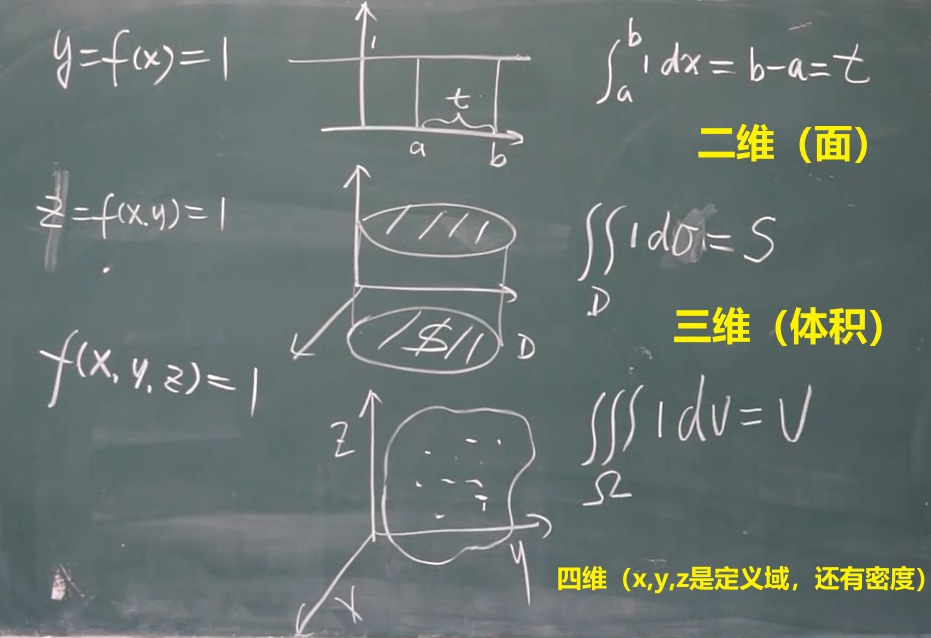 y=f(x)=1
1
t
a
b
∫_a^b 1 dx = b-a = t
二维（面）
z=f(x,y)=1
S
D
∬_D 1 dσ = S
三维（体积）
f(x,y,z)=1
z
y
x
∭_Ω 1 dv = V
四维（x,y,z是定义域，还有密度）